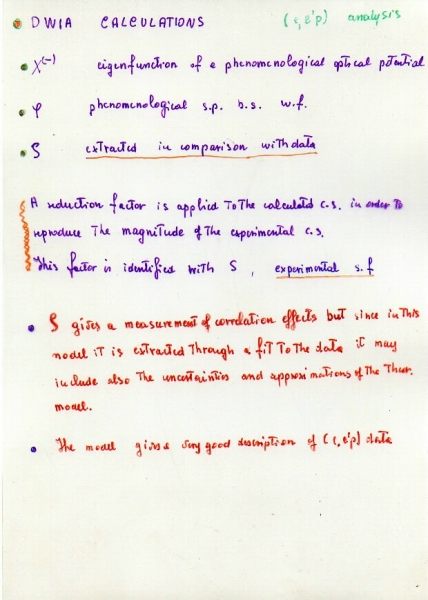 DWIA CALCULATIONS (e,e'p) analysis
χ(-) eigenfunction of a phenomenological optical potential
φ phenomenological s.p. b.s. w.f.
S extracted in comparison with data
A reduction factor is applied to the calculated c.s. in order to
reproduce the magnitude of the experimental c.s.
This factor is identified with S, experimental s.f
S gives a measurement of correlation effects but since in this
model it is extracted through a fit to the data it may
include also the uncertainties and approximations of the theor.
model.
The model gives a very good description of (e,e'p) data